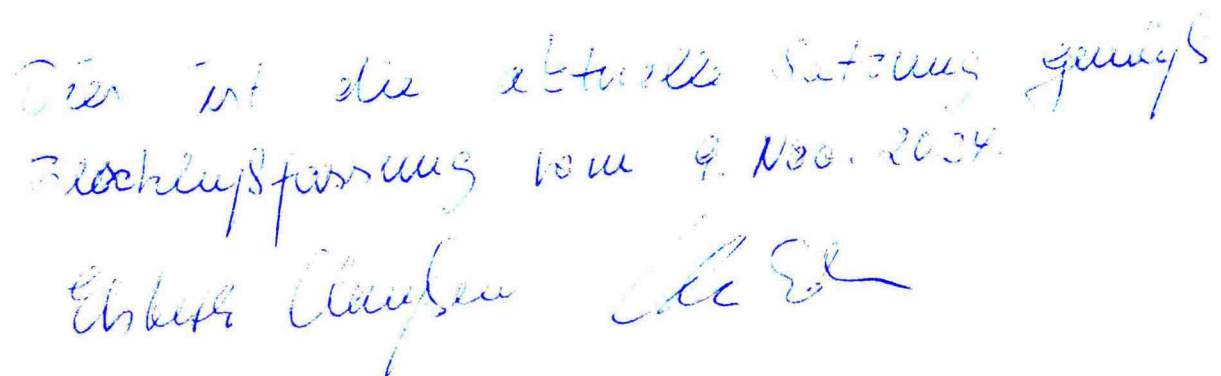 Dies ist die aktuelle Satzung gemäß
Beschlußfassung vom 9. Nov. 2024.
Elsbeth Claußen